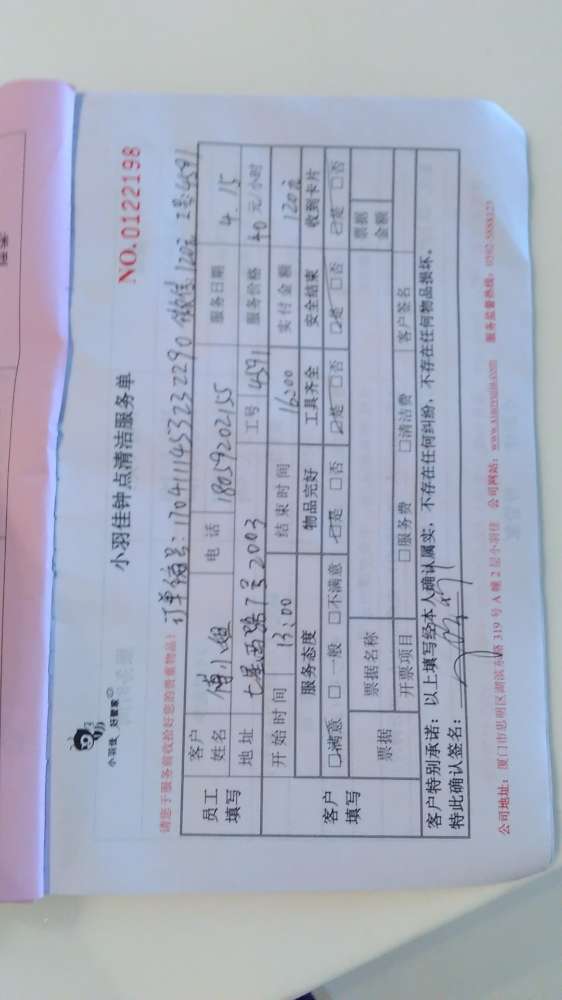 小羽佳 好管家
小羽佳钟点清洁服务单
NO.0122198
请您于服务前收拾好您的贵重物品！
订单编号：1704111453232290 微信120元 工号4591
员工填写 客户姓名 傅小姐 电话 18059202155 服务日期 4.15
地址 七星西路7号2003 工号 4591 服务价格 40 元/小时
开始时间 13:00 结束时间 16:00 实付金额 120元
客户填写 服务态度 物品完好 工具齐全 安全结束 收到卡片
☑满意 □一般 □不满意 ☑是 □否 ☑是 □否 ☑是 □否 ☑是 □否
票据 票据名称 票据金额
开票项目 □服务费 □清洁费 客户签名
客户特别承诺：以上填写经本人确认属实，不存在任何纠纷，不存在任何物品损坏。
特此确认签名：
公司地址：厦门市思明区湖滨东路 319 号 A 幢 2 层小羽佳 公司网站：www.xiaoyujia.com 服务监督热线：0592-5888123